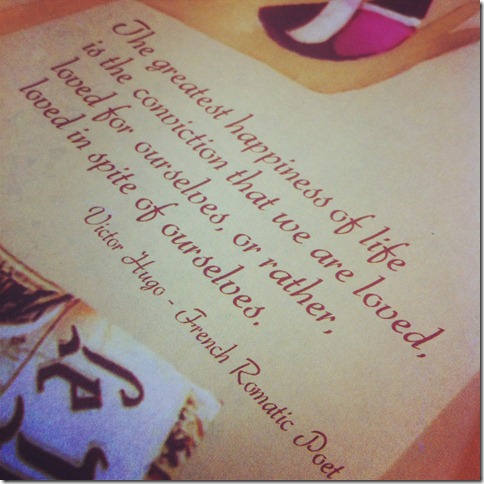 The greatest happiness of life
is the conviction that we are loved,
loved for ourselves, or rather,
loved in spite of ourselves.
Victor Hugo - French Romatic Poet